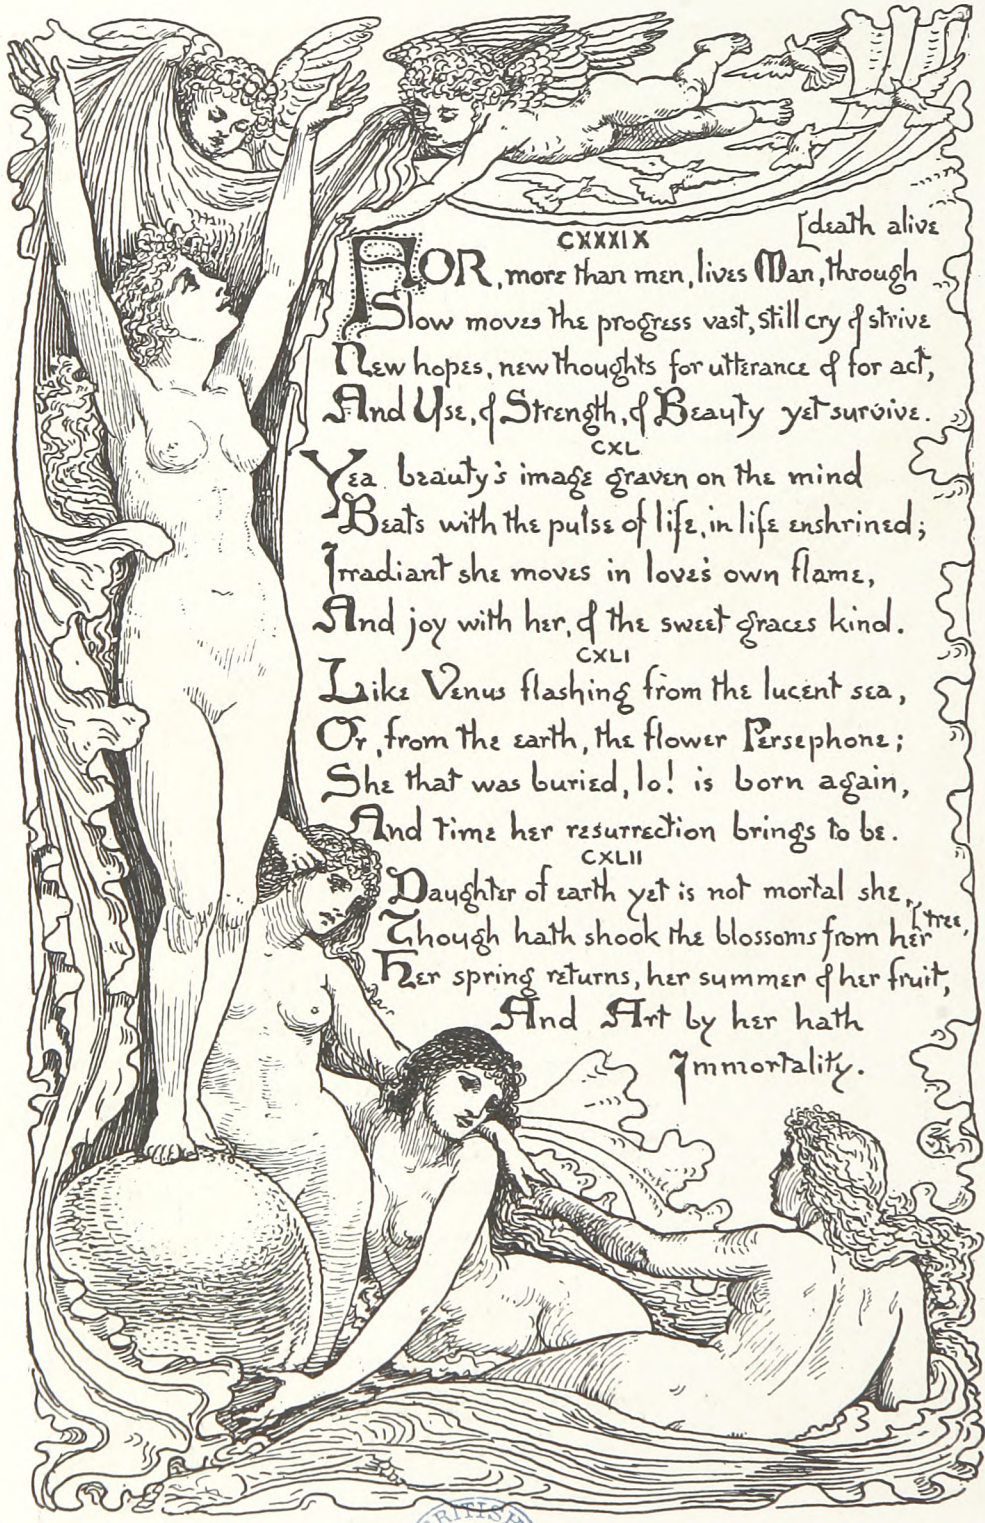 CXXXIX
[death alive
FOR, more than men, lives Man, through
Slow moves the progress vast, still cry & strive
New hopes, new thoughts for utterance & for act,
And Use, & Strength, & Beauty yet survive.
CXL
Yea beauty's image graven on the mind
Beats with the pulse of life, in life enshrined;
Irradiant she moves in love's own flame,
And joy with her, & the sweet graces kind.
CXLI
Like Venus flashing from the lucent sea,
Or, from the earth, the flower Persephone;
She that was buried, lo! is born again,
And time her resurrection brings to be.
CXLII
Daughter of earth yet is not mortal she,
Though hath shook the blossoms from her [tree,
Her spring returns, her summer & her fruit,
And Art by her hath
Immortality.
BRITISH